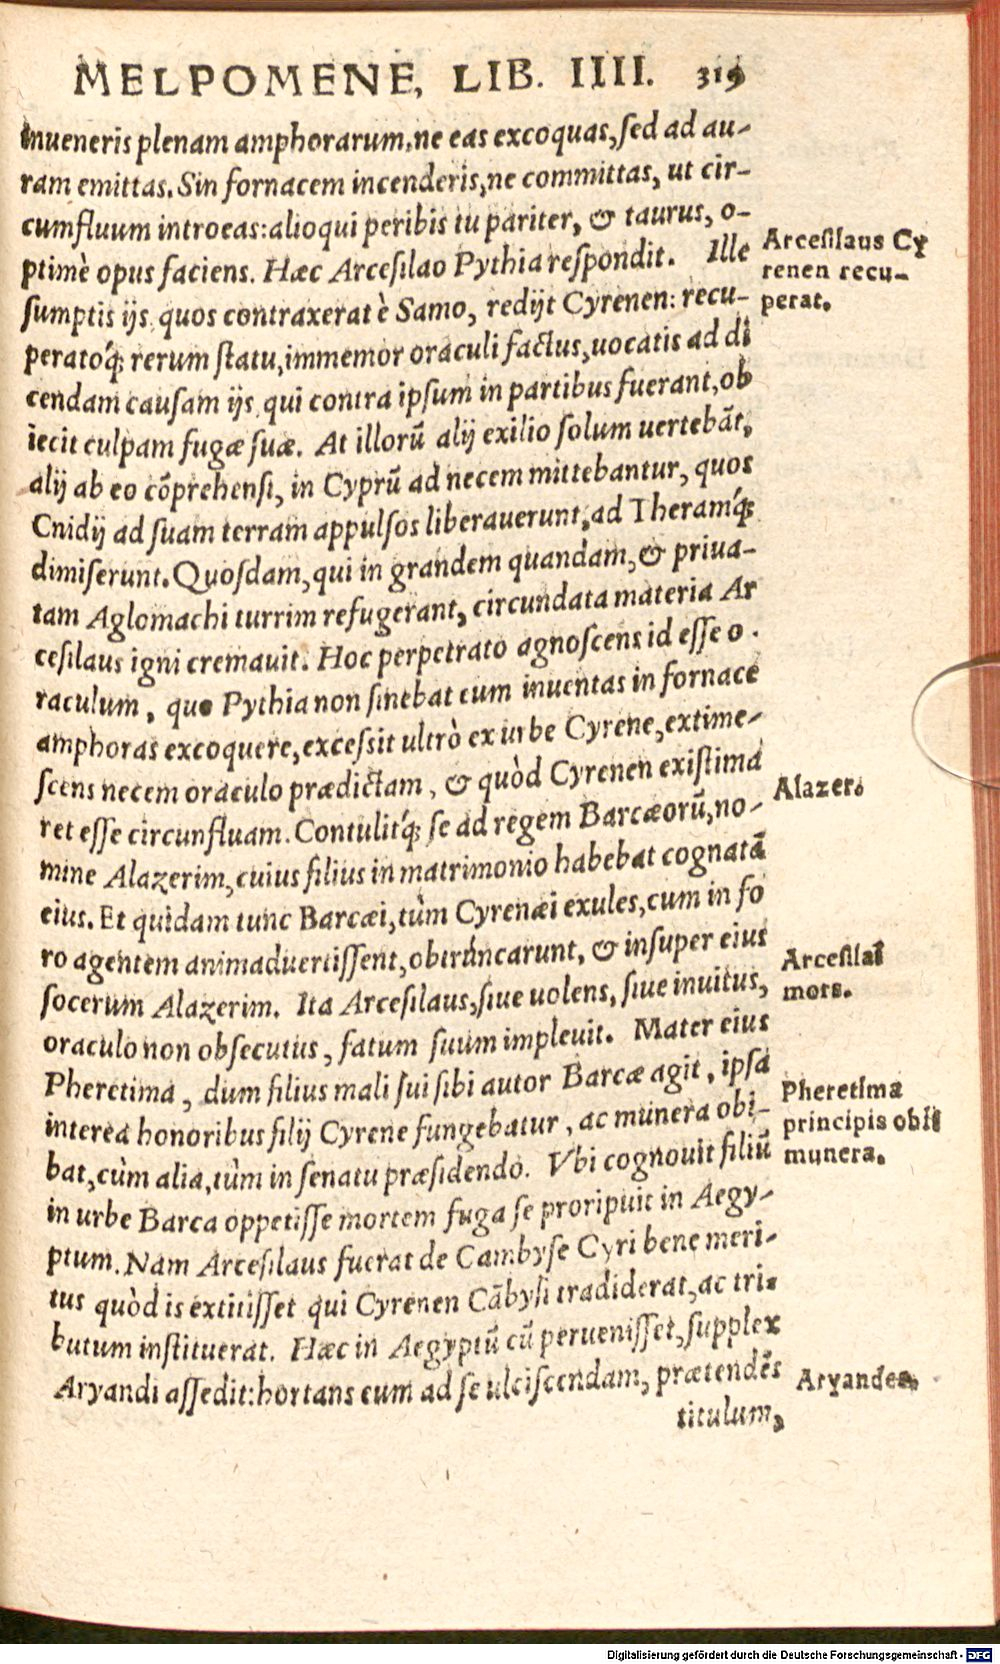 MELPOMENE, LIB. IIII. 319
inueneris plenam amphorarum, ne eas excoquas, sed ad au-
ram emittas. Sin fornacem incenderis, ne committas, ut cir-
cumfluum introeas: alioqui peribis tu pariter, & taurus, o-
ptimè opus faciens. Hæc Arcesilao Pythia respondit. Ille
Arcesilaus Cy
renen recu-
perat.
sumptis ijs, quos contraxerat è Samo, redijt Cyrenen: recu-
peratoq́; rerum statu, immemor oraculi factus, uocatis ad di
cendam causam ijs, qui contra ipsum in partibus fuerant, ob
iecit culpam fugæ suæ. At illorũ alij exilio solum uertebãt,
alij ab eo cõprehensi, in Cyprũ ad necem mittebantur, quos
Cnidij ad suam terram appulsos liberauerunt, ad Theramq́;
dimiserunt. Quosdam, qui in grandem quandam, & priua-
tam Aglomachi turrim refugerant, circundata materia Ar
cesilaus igni cremauit. Hoc perpetrato agnoscens id esse o.
raculum, quo Pythia non sinebat eum inuentas in fornace
amphoras excoquere, excessit ultrò ex urbe Cyrene, extime-
scens necem oraculo prædictam, & quòd Cyrenen existima
Alazer.
ret esse circunfluam. Contulitq́; se ad regem Barcæorũ, no-
mine Alazerim, cuius filius in matrimonio habebat cognatã
eius. Et quidam tunc Barcæi, tùm Cyrenæi exules, cum in fo
ro agentem animaduertissent, obtruncarunt, & insuper eius
Arcesilai
mors.
socerum Alazerim. Ita Arcesilaus, siue uolens, siue inuitus,
oraculo non obsecutus, fatum suum impleuit. Mater eius
Pheretima, dum filius mali sui sibi autor Barcæ agit, ipsa
Pheretima
principis obit
munera.
interea honoribus filij Cyrene fungebatur, ac munera obi-
bat, cùm alia, tùm in senatu præsidendo. Vbi cognouit filiũ
in urbe Barca oppetisse mortem fuga se proripuit in Aegy-
ptum. Nam Arcesilaus fuerat de Cambyse Cyri bene meri-
tus quòd is extitisset qui Cyrenen Cãbysi tradiderat, ac tri-
butum instituerat. Hæc in Aegyptũ cũ peruenisset, supplex
Aryandi assedit: hortans eum ad se ulciscendam, prætendẽs
Aryandes.
titulum,
Digitalisierung gefördert durch die Deutsche Forschungsgemeinschaft - DFG